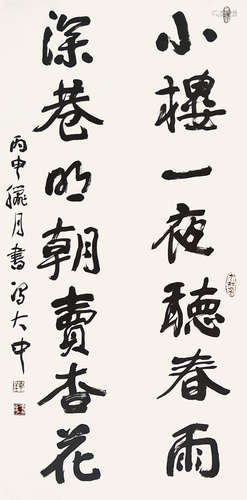 小樓一夜聽春雨
深巷明朝賣杏花
丙申臘月書馮大中